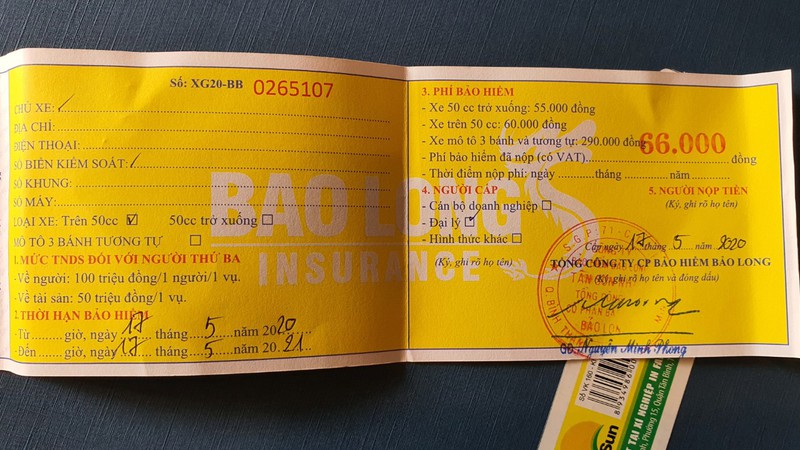 Số: XG20-BB 0265107
CHỦ XE:
ĐỊA CHỈ:
ĐIỆN THOẠI:
SỐ BIỂN KIỂM SOÁT:
SỐ KHUNG:
SỐ MÁY:
LOẠI XE: Trên 50cc ☑ 50cc trở xuống ☐
MÔ TÔ 3 BÁNH TƯƠNG TỰ ☐
1.MỨC TNDS ĐỐI VỚI NGƯỜI THỨ BA
-Về người: 100 triệu đồng/1 người/1 vụ.
-Về tài sản: 50 triệu đồng/1 vụ.
2.THỜI HẠN BẢO HIỂM
-Từ........ giờ, ngày 17 tháng 5 năm 2020
-Đến....... giờ, ngày 17 tháng 5 năm 2021
BAO LONG
INSURANCE
3. PHÍ BẢO HIỂM
- Xe 50 cc trở xuống: 55.000 đồng
- Xe trên 50 cc: 60.000 đồng
- Xe mô tô 3 bánh và tương tự: 290.000 đồng
- Phí bảo hiểm đã nộp (có VAT) 66.000 đồng
- Thời điểm nộp phí: ngày........tháng........năm........
4. NGƯỜI CẤP 5. NGƯỜI NỘP TIỀN
- Cán bộ doanh nghiệp ☐ (Ký, ghi rõ họ tên)
- Đại lý ☑
- Hình thức khác ☐ Cấp ngày 17 tháng 5 năm 2020
(Ký, ghi rõ họ tên) TỔNG CÔNG TY CP BẢO HIỂM BẢO LONG
(Ký, ghi rõ họ tên và đóng dấu)
BẢO LONG
GĐ. Nguyễn Minh Phong
Sun